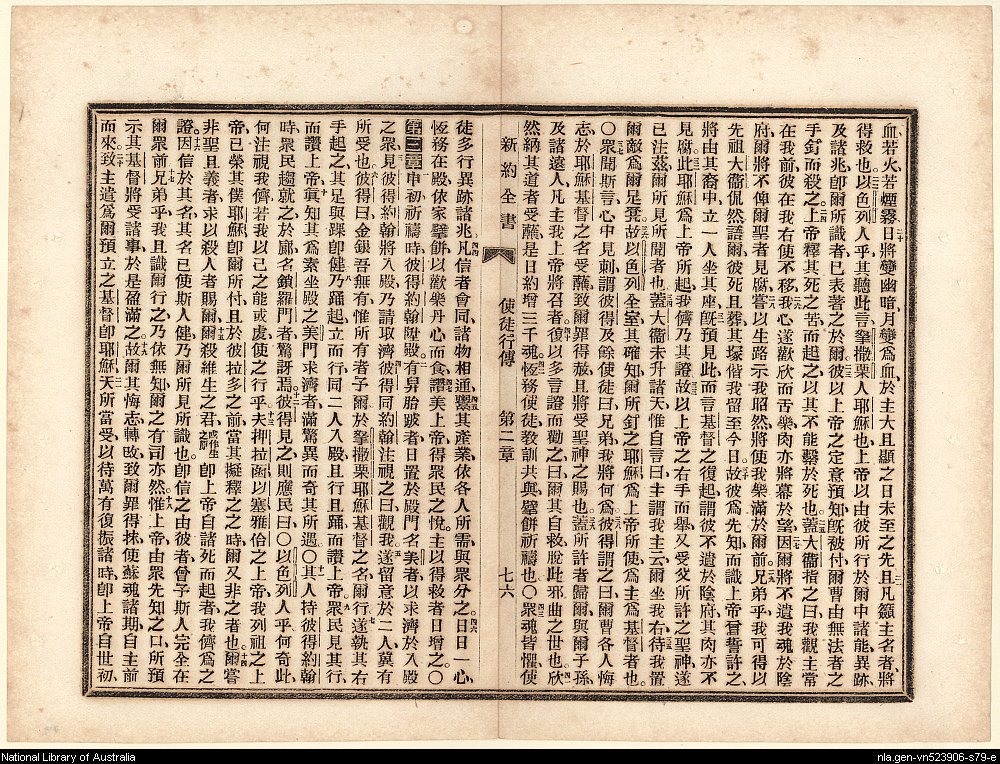 血若火若煙霧日將變幽暗月變爲血於主大且顯之日未至之先且凡籲主名者將
得救也以色列人乎其聽此言拏撒勒人耶穌也上帝以由彼所行於爾中諸能異跡
及諸兆卽爾所識者已表著之於爾彼以上帝之定意預知旣被付爾曹由無法者之
手釘而殺之上帝釋其死之苦而起之以其不能繄於死也蓋大衞指之曰我觀主常
在我前彼在我右使不移我心遂歡欣而舌樂肉亦將幕於望因爾將不遺我魂於陰
府爾將不俾爾聖者見腐爾嘗以生路示我昭然將使我樂滿於爾前兄弟乎我可得以
先祖大衞侃然語爾彼死且葬其塚偕我留至今日故彼爲先知而識上帝曾誓許之
將由其裔中立一人坐其座旣預見此而言基督之復起謂彼不遺於陰府其肉亦不
見腐此耶穌爲上帝所起我儕乃其證故以上帝之右手而舉又受父所許之聖神遂
已注茲爾所見所聞者也蓋大衞未升諸天惟自言曰主謂我主云爾坐我右待我置
爾敵爲爾足凳故以色列全室其確知爾所釘之耶穌爲上帝所使爲主爲基督者也
○衆聞斯言心中見刺謂彼得及餘使徒曰兄弟我將何爲彼得謂之曰爾曹各人悔
志於耶穌基督之名受蘸致爾罪得赦且將受聖神之賜也蓋所許者歸爾與爾子孫
及諸遠人凡主我上帝將召者復以多言證而勸之曰爾其自救脫此邪曲之世也欣
然納其道者受蘸是日約增三千魂恆務使徒敎訓共與擘餅祈禱也○衆魂皆懼使
新約全書 使徒行傳 第二章 七六
徒多行異跡諸兆凡信者會同諸物相通鬻其產業依各人所需與衆分之日日一心
恆務在殿依家擘餅以歡樂丹心而食讚美上帝得衆民之悅主以得救者日增之○
第三章申初祈禱時彼得約翰陞殿有昇胎跛者日置於殿門名美者以求濟於入殿
之衆見彼得約翰將入殿乃請取濟彼得同約翰注視之曰觀我遂留意於二人冀有
所受也彼得曰金銀吾無有惟所有者予爾於拏撒勒耶穌基督之名爾行遂執其右
手起之其足與踝卽健乃踊起立而行同二人入殿且行且踊而讚上帝衆民見其行
而讚上帝眞知其爲素坐殿之美門求濟者滿驚異而奇其所遇○其人持彼得約翰
時衆民趨就之於廊名鎖羅門者驚訝焉彼得見之則應民曰○以色列人乎何奇此
何注視我儕若我以己之能或虔使之行乎夫押拉函以塞雅佮之上帝我列祖之上
帝已榮其僕耶穌卽爾所付且於彼拉多之前當其擬釋之之時爾又非之者也爾嘗
非聖且義者求以殺人者賜爾爾殺維生之君或作生之原卽上帝自諸死而起者我儕爲之
證因信於其名其名已使斯人健乃爾所見所識也卽信之由彼者曾予斯人完全在
爾衆前兄弟乎我且識爾行之乃依無知爾之有司亦然惟上帝由衆先知之口所預
示其基督將受諸事於是盈滿之故爾其悔志轉改致爾罪得抹使蘇魂諸期自主前
而來致主遣爲爾預立之基督卽耶穌天所當受以待萬有復振諸時卽上帝自世初
National Library of Australia
nla.gen-vn523906-s79-e